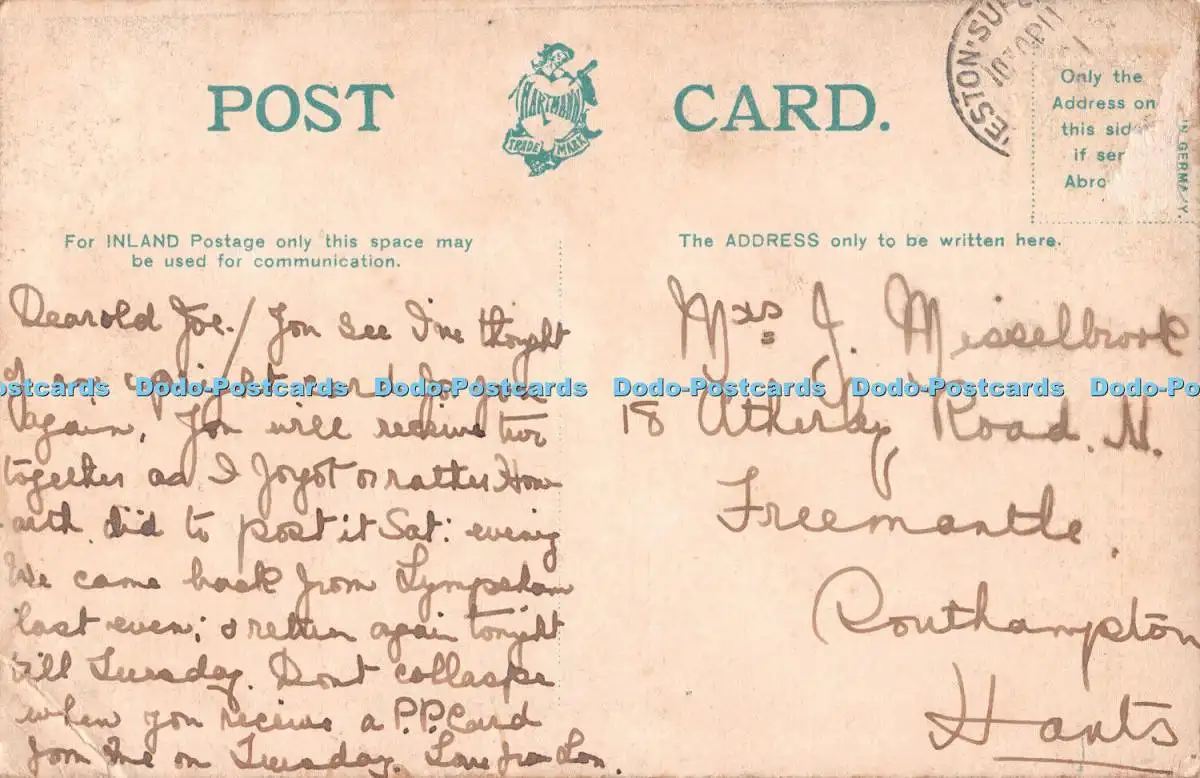 POST CARD.
HARTMANN
TRADE MARK
ESTON-SUPE
Only the
Address on
this side
if sen
Abro
IN GERMA Y
For INLAND Postage only this space may
be used for communication.
The ADDRESS only to be written here.
Dear old Joe./ You see I've thought
again. You will receive two
together as I forgot or rather How
arth did to post it Sat: evening
We came back from Lympsham
last even; & return again tonight
till Tuesday. Dont collaspe
when you receive a P.P. Card
from me on Tuesday. Love from
Mrs J. Misselbrook
18 Atherley Road. N.
Freemantle.
Southampton
Hants.
ostcards Dodo-Postcards Dodo-Postcards Dodo-Postcards Dodo-Postcards Dodo-Po